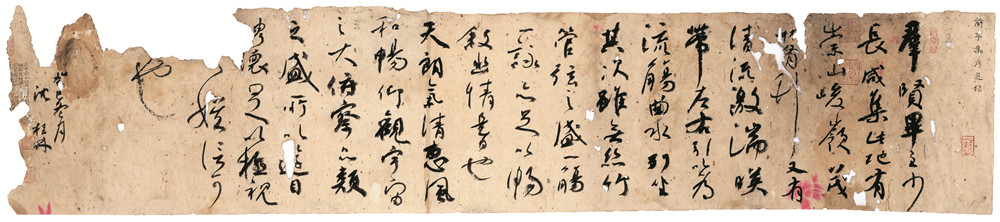 蘭亭集序選錄
羣賢畢至少
長咸集此地有
崇山峻嶺茂
又有
清流激湍映
帶左右引以為
流觴曲水列坐
其次雖無絲竹
管弦之盛一觴
一詠亦足以暢
敘幽情是日也
天朗氣清惠風
和暢仰觀宇宙
之大俯察品類
之盛所以遊目
騁懷足以極視
娛信可
也
月
沈